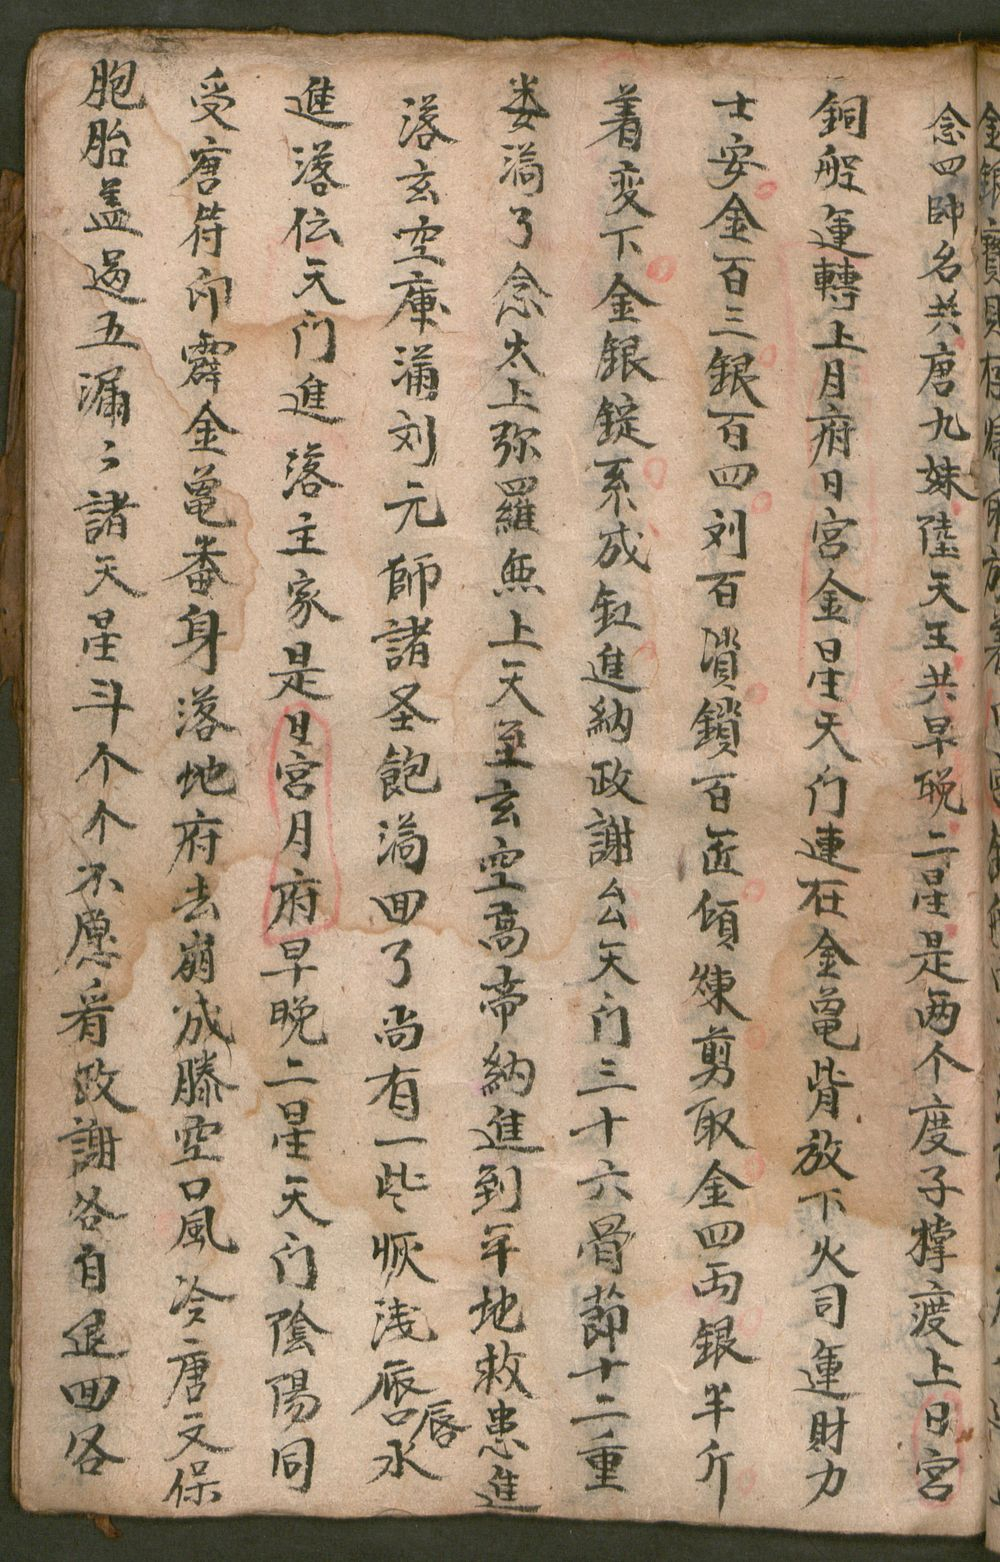 念四帥名共唐九妹陸天王共早晚二星是两个度子撑渡上日宮
銅船運轉上月府日宮金星天门連在金黾背放下火司運財力
士安金百三銀百四刘百領鎖百匠傾煉剪取金四両銀半斤
着变下金銀錠系成缸進納政謝厶天门三十六骨節十二重
娄満了念太上弥羅無上天至玄空高帝納進到年地救患進
落玄空庫蒲刘元師諸圣飽満回了尚有一些恢浅唇口水
進落伝天门進落主家是日宮月府早晚二星天门陰陽同
受唐符印霹金黾番身落地府去崩成滕空口風冷唐文保
胞胎盖過五漏〻諸天星斗个个不愿看政謝各自退回各